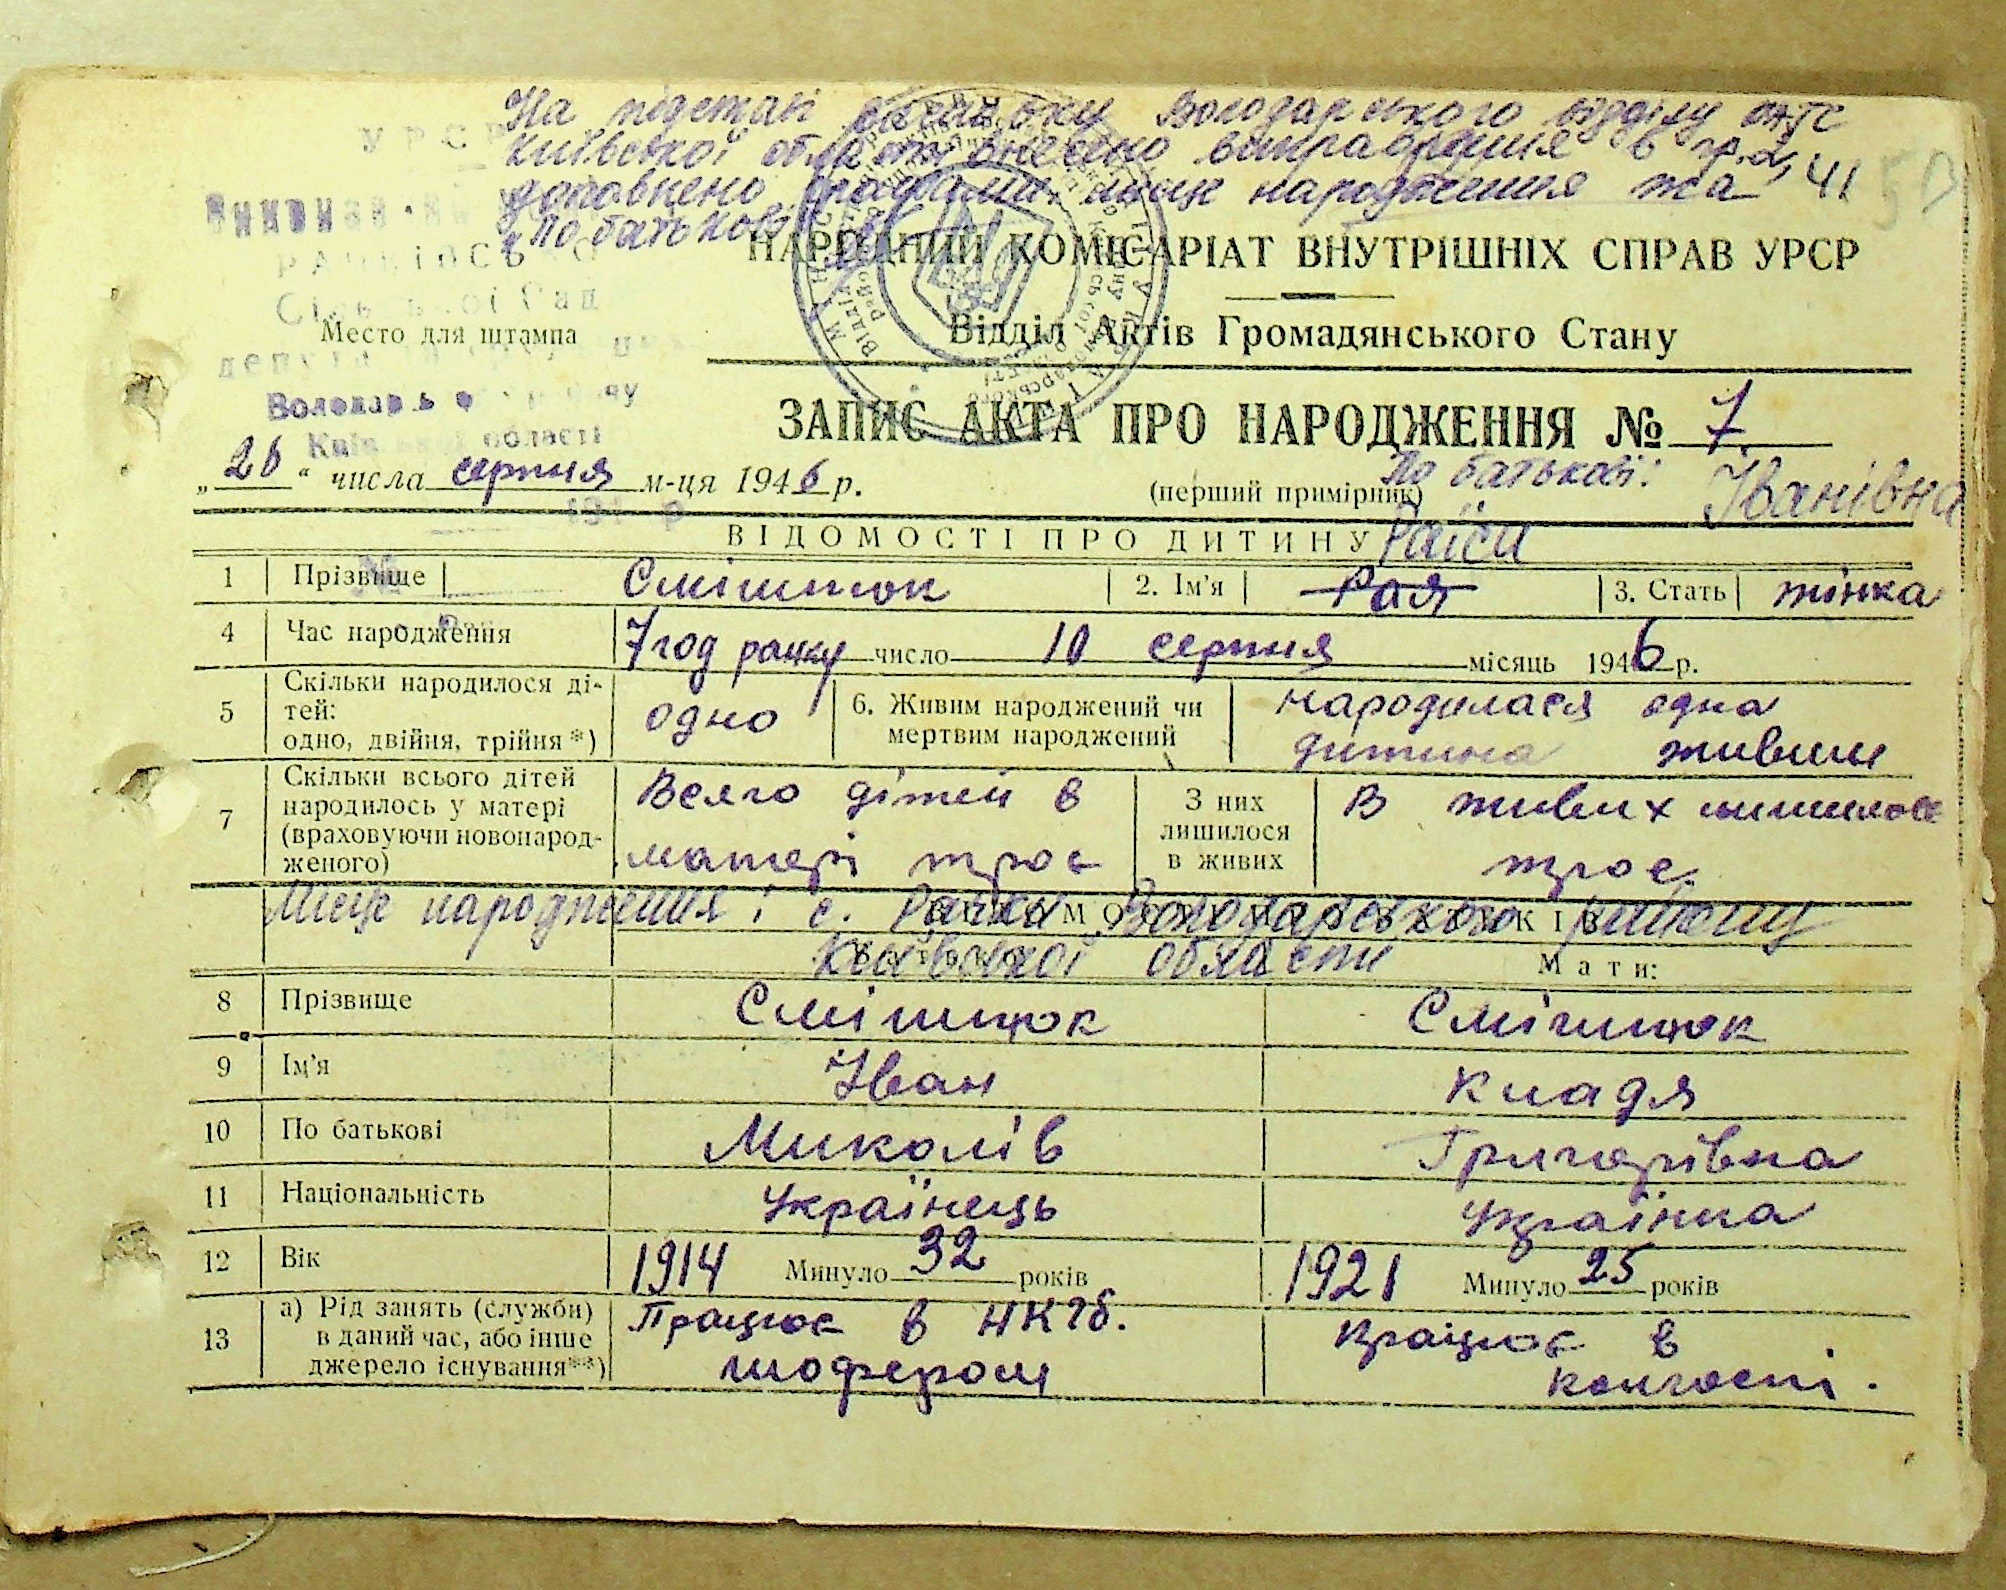 На підставі висновку Володарського відділу ЗАГС
Київської області внесено виправлення в гр. 2, 41
доповнено графами: місце народження та
"По батькові"
УРСР
Рачківська
Сільської Рад
депутатів
Володарського району
Київської області
НАРОДНИЙ КОМІСАРІАТ ВНУТРІШНІХ СПРАВ УРСР
Место для штампа
Відділ Актів Громадянського Стану
ЗАПИС АКТА ПРО НАРОДЖЕННЯ № 7.
„20“ числа серпня м-ця 1946 р.
(перший примірник)
По батькові: Іванівна
ВІДОМОСТІ ПРО ДИТИНУ Раїса
1 Прізвище Смішнюк 2. Ім'я Рая 3. Стать жінка
4 Час народження 7 год ранку число 10 серпня місяць 1946 р.
5 Скільки народилося дітей: одно, двійня, трійня*) одно 6. Живим народжений чи мертвим народжений народилася одна дитина живши
7 Скільки всього дітей народилось у матері (враховуючи новонародженого) Всяго дітей в матері троє З них лишилося в живих В живих лишилось троє.
Місце народження: с. Рачки Володарського району
Київської області
Мати:
8 Прізвище Смішнюк Смішнюк
9 Ім'я Іван Кладя
10 По батькові Миколів Григорівна
11 Національність Українець Українка
12 Вік 1914 Минуло 32 років 1921 Минуло 25 років
13 а) Рід занять (служби) в даний час, або інше джерело існування**) Працює в НКГб. шофером Працює в колгоспі.